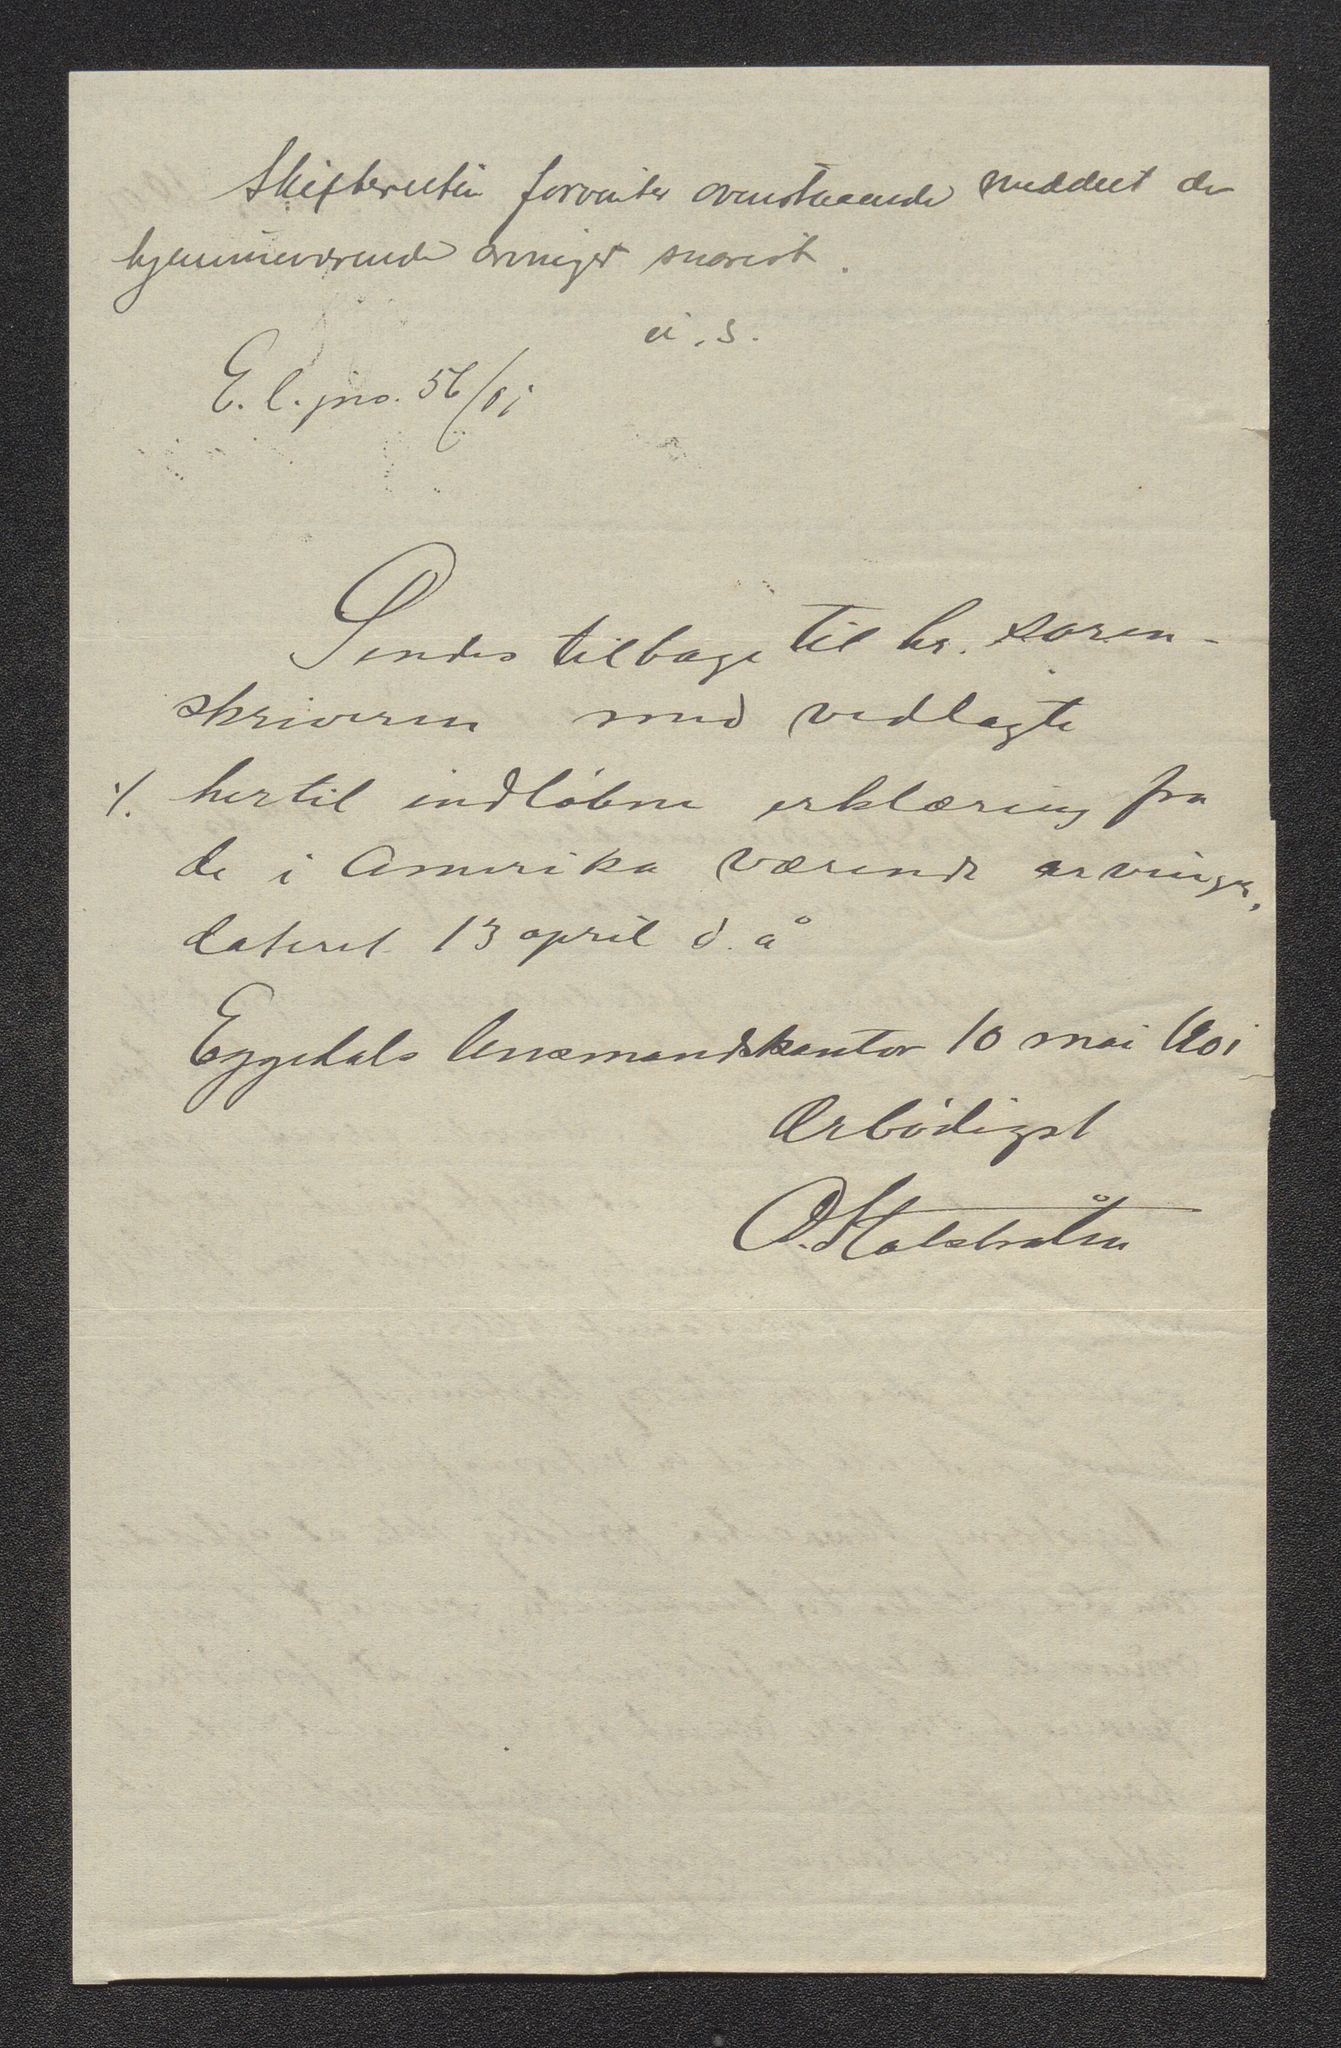 Skifteretten forventer ovenstaaende meddelt de
hjemmeværende arvinger snarest.
u. s.
E. l. jno. 56/01
Sendes tilbage til hr. soren-
skriveren med vedlagte
./. hertil indløbne erklæring fra
de i Amerika værende arvinger,
dateret 13 april d. å
Eggedals lensmandskontor 10 mai 1901
Ærbødigst
O. Halstråen